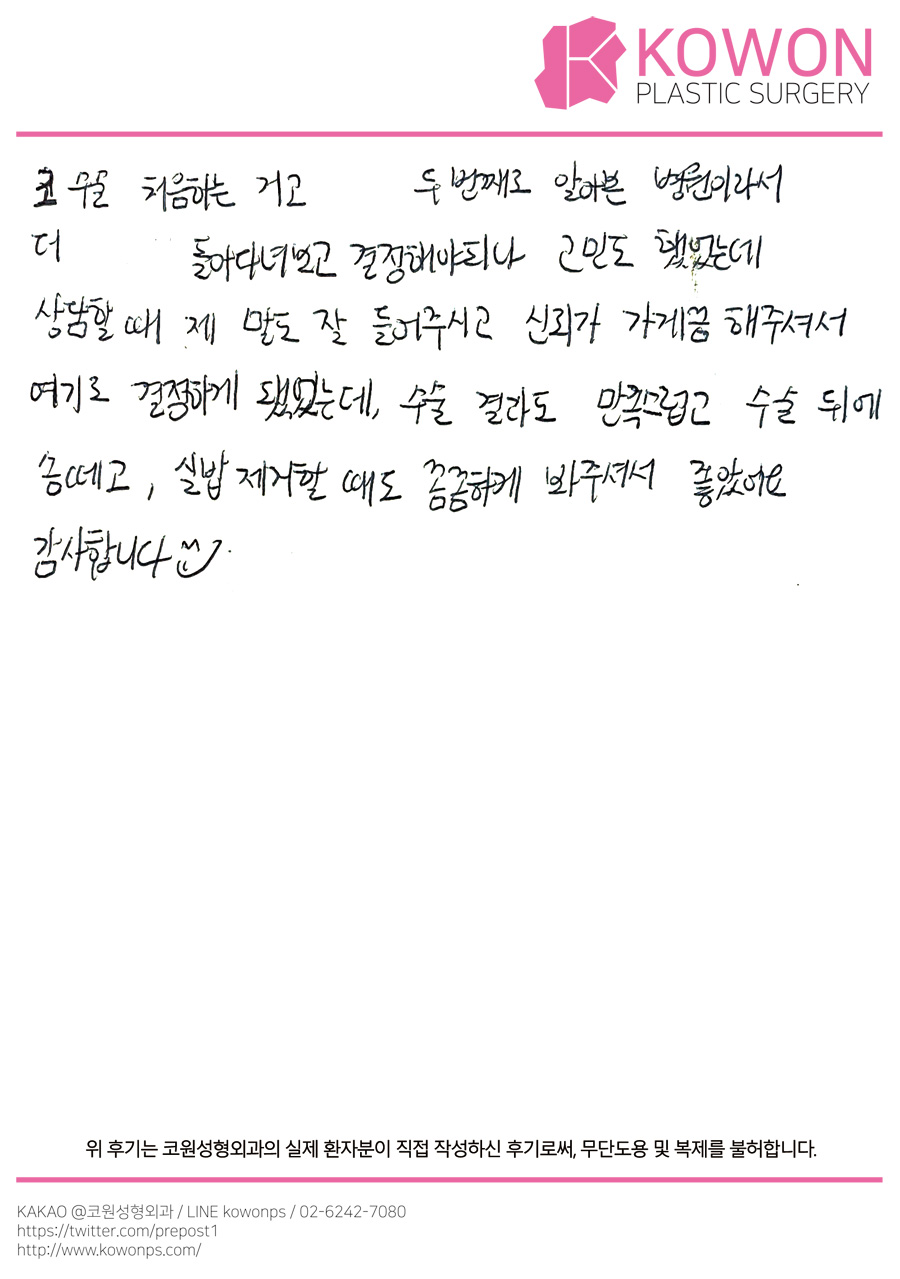 KOWON
PLASTIC SURGERY
코 수술 처음하는 거고 두번째로 알아본 병원이라서
더 돌아다녀보고 결정해야되나 고민도 했었는데
상담할 때 제 말도 잘 들어주시고 신뢰가 가게끔 해주셔서
여기로 결정하게 됐었는데, 수술 결과도 만족스럽고 수술 뒤에
솜떼고, 실밥 제거할 때도 꼼꼼하게 봐주셔서 좋았어요
감사합니다
위 후기는 코원성형외과의 실제 환자분이 직접 작성하신 후기로써, 무단도용 및 복제를 불허합니다.
KAKAO @코원성형외과 / LINE kowonps / 02-6242-7080
https://twitter.com/prepost1
http://www.kowonps.com/